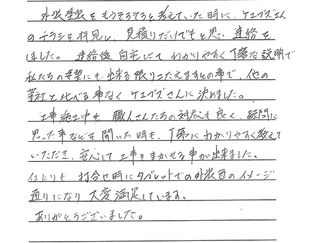 外張塗装をもうそろそろと考えていた時に、ケエズさん
のチラシを拝見し、見積りだけでもと思い連絡を
しました。連絡後、自宅にてわかりやすく丁寧な説明で
私たちの要望にも出来る限りこたえますとの事で、他の
業社と比べる事なくケエズさんに決めました。
工事施工中も職人さんたちの対応も良く、疑問に
思った事などを聞いた時も、丁寧にわかりやすく教えて
いただき、安心して工事をまかせる事が出来ました。
仕上りも打合せ時にタブレットでの外装色のイメージ
通りになり大変満足しています。
ありがとうございました。